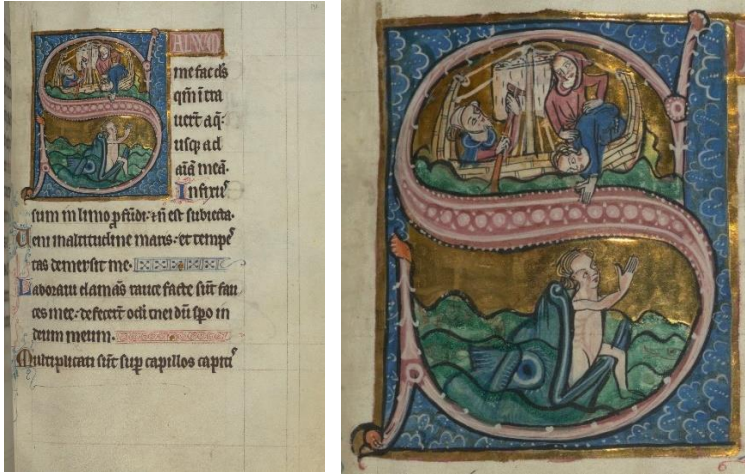 SALVVM
me fac ds
qm̄ ı̄tra
uert̄ aq̄:
usq; ad
aı̄ā meā.
Infixus
sum in limo ꝓfūdi: ⁊ n̄ est substā.
Veni in altitudine maris: et tempes
tas demersit me.
Laboraui clamās rauce facte sūt fau
ces mee: defecert̄ oc̄li mei dū spo in
deum meum.
Multiplicati sūt sup capillos capitis